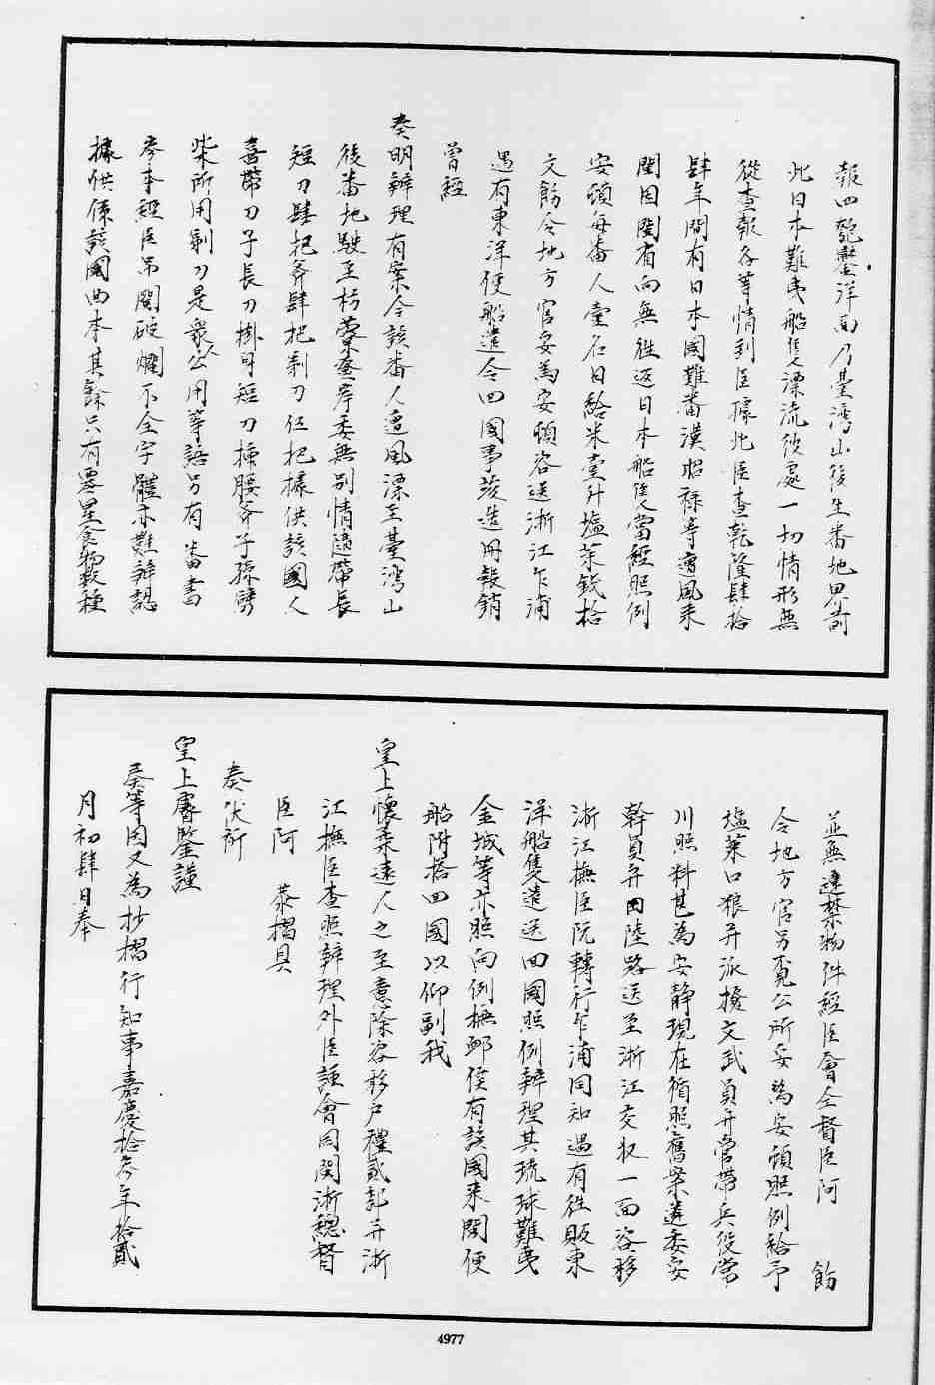 報四鵞鑾洋面乃臺灣山後生番地界前
此日本難夷船隻人漂流彼處一切情形無
從查報各等情到臣據此臣查乾隆肆拾
肆年間有日本國難番漢昭祿等遭風來
閩因閩省向無往返日本船隻當經照例
安頓每番人壹名日給米壹升塩菜錢拾
文飭令地方官妥為安頓咨送浙江乍浦
遇有東洋便船遣令回國事竣造冊報銷
曾經
奏明辦理有案今該番人遭風漂至臺灣山
後番地駛至枋藔登岸委無別情隨帶長
短刀肆把斧肆把剃刀伍把據供該國人
喜帶刀子長刀掛身短刀揷腰斧子孫劈
柴所用剃刀是衆公用等語另有番書
叁本經臣吊閱破爛不全字體亦難辨認
據供係該國曲本其餘只有零星食物數種
並無違禁物件經臣會仝督臣阿 飭
令地方官另覓公所妥為安頓照例給予
塩菜口粮并派撥文武員弁管帶兵役常
川照料甚為安靜現在循照舊案遴委妥
幹員弁由陸路送至浙江交收一面咨移
浙江撫臣阮轉行乍浦同知遇有往販東
洋船隻遣送回國照例辦理其琉球難夷
金城等亦照向例撫卹俟有該國來閩便
船附搭回國以仰副我
皇上懷柔遠人之至意除咨移戶禮貳部并浙
江撫臣查照辦理外臣謹會同閩浙總督
臣阿 恭摺具
奏伏祈
皇上睿鑒謹
奏等因又為抄摺行知事嘉慶拾叁年拾貳
月初肆日奉
4977